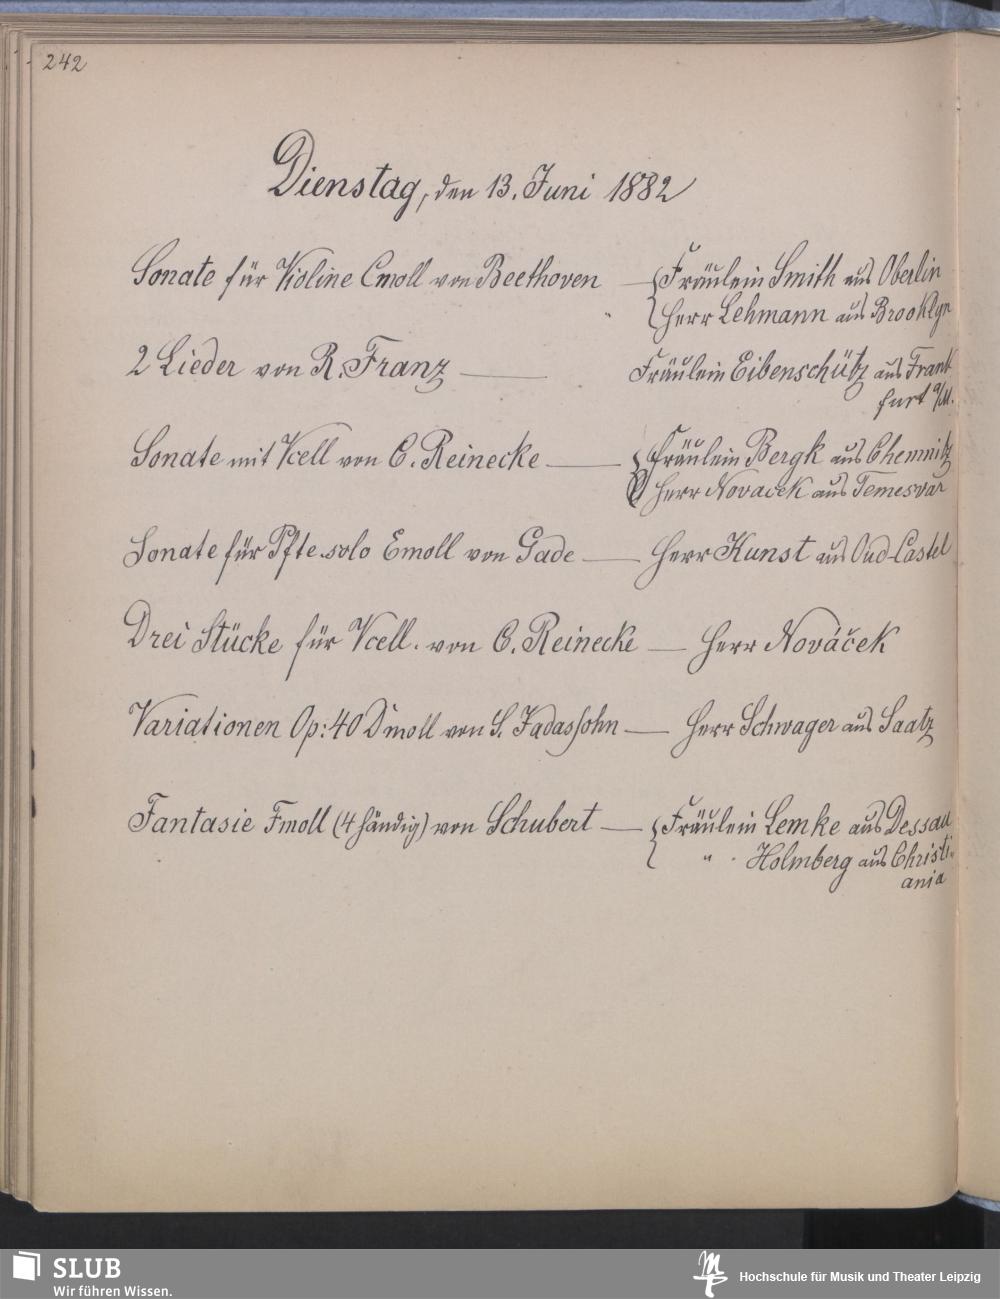 242
Dienstag, den 13. Juni 1882
Sonate für Violine Cmoll von Beethoven — Fräulein Smith aus Oberlin
" Herr Lehmann aus Brooklyn
2 Lieder von R. Franz — Fräulein Eibenschütz aus Frank
furt a/M.
Sonate mit Vcell von C. Reinecke — Fräulein Bergk aus Chemnitz
Herr Novacek aus Temesvár
Sonate für Pfte solo Emoll von Gade — Herr Kunst aus Oud-Castel
Drei Stücke für Vcell. von C. Reinecke — Herr Nováček
Variationen Op: 40 Dmoll von S. Jadassohn — Herr Schwager aus Saatz
Fantasie Fmoll (4händig) von Schubert — Fräulein Lemke aus Dessau
" Holmberg aus Christi-
ania
SLUB
Wir führen Wissen.
Hochschule für Musik und Theater Leipzig